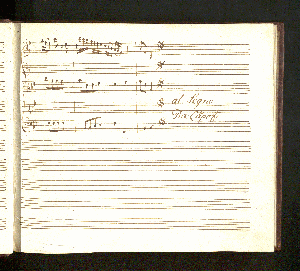 al Segno
Da Capo